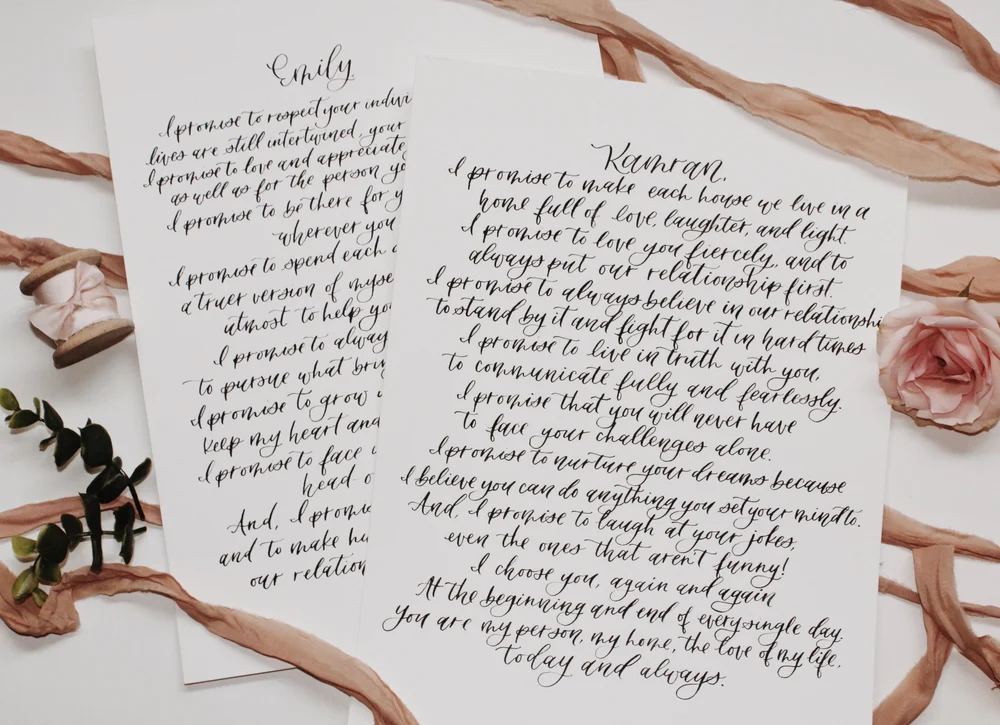 Emily.
I promise to respect your
lives are still intertwined, your
I promise to love and appreciate
as well as for the person
I promise to be there for
wherever you
I promise to spend each
a truer version of
utmost to help
I promise to
to pursue what
I promise to grow
keep my heart and
I promise to face
head
And, I
and to make
our
Kamran,
I promise to make each house we live in a
home full of love, laughter, and light.
I promise to love you fiercely, and to
always put our relationship first.
I promise to always believe in our
to stand by it and fight for it in hard times
I promise to live in truth with you,
to communicate fully and fearlessly.
I promise that you will never have
to face your challenges alone.
I promise to nurture your dreams because
I believe you can do anything you set your mind to.
And, I promise to laugh at your jokes,
even the ones that aren't funny!
I choose you, again and again
At the beginning and end of every single day.
You are my person, my home, the love of my life.
today and always.